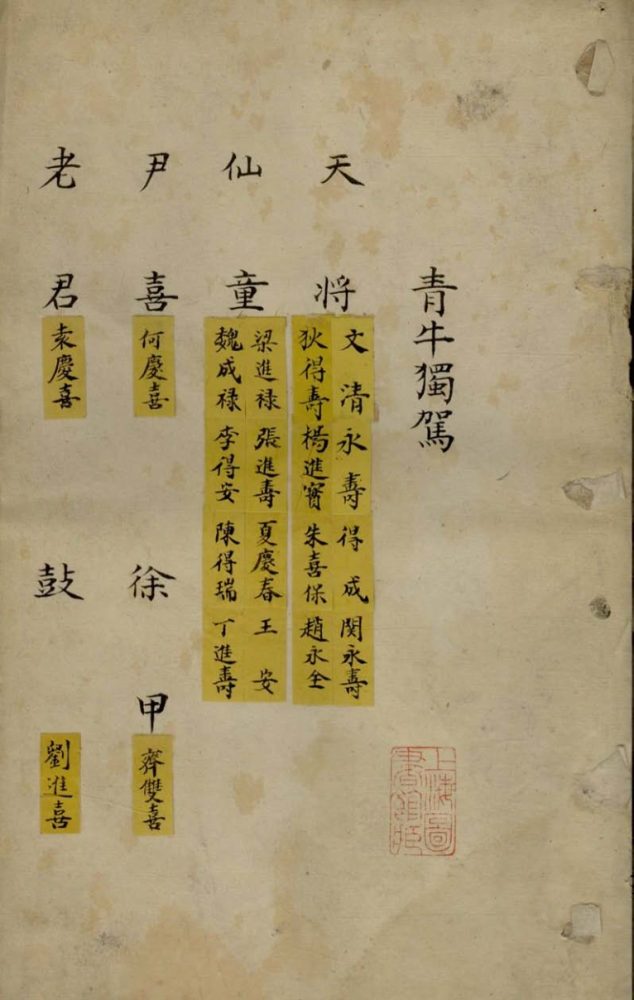 青牛獨駕
天將
文清 永壽 得成 関永壽
狄得壽 楊進寶 朱喜保 趙永全
仙童
梁進禄 張進壽 夏慶春 王安
魏成禄 李得安 陳得瑞 丁進壽
尹喜 何慶喜
徐甲 齊雙喜
老君 袁慶喜
鼓 劉進喜
上海圖
書館藏